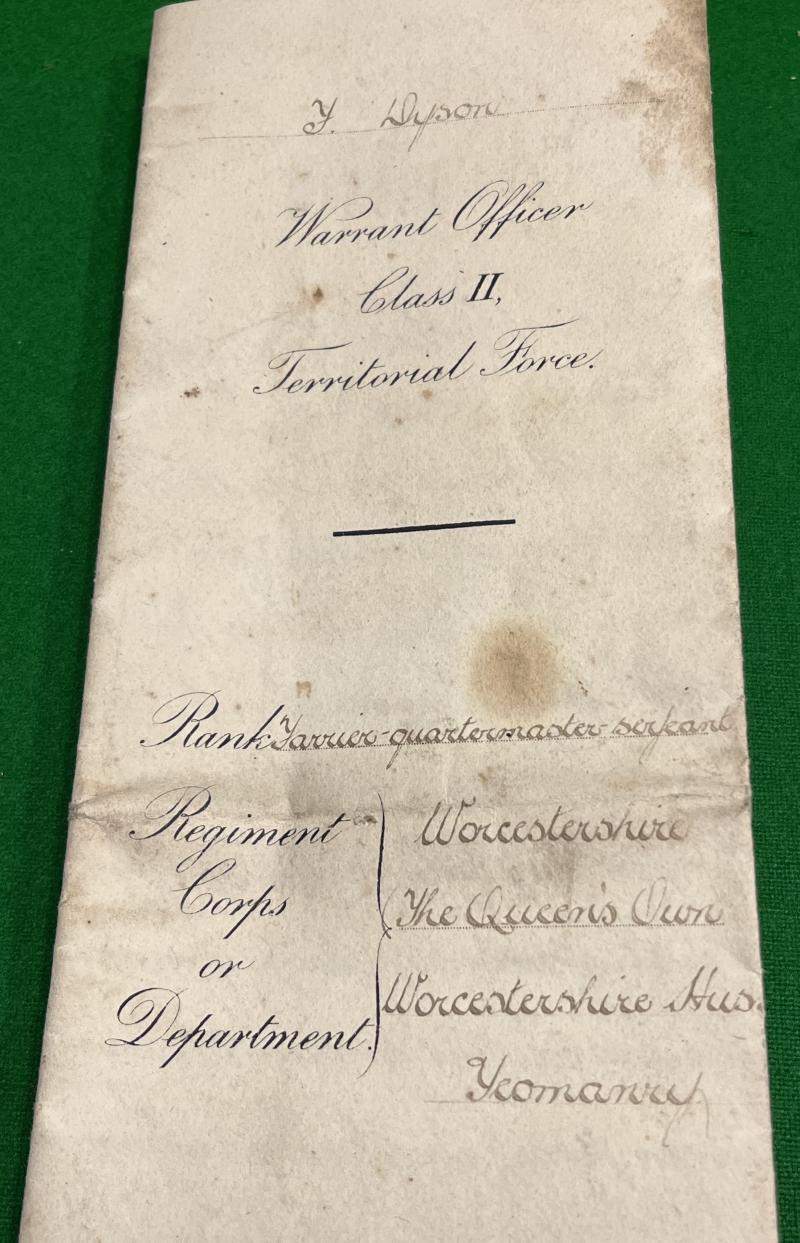 F. Dyson
Warrant Officer
Class II,
Territorial Force.
Rank Farrier-quartermaster-serjeant
Regiment
Corps
or
Department.
Worcestershire
(The Queen's Own
Worcestershire Hus.
Yeomanry